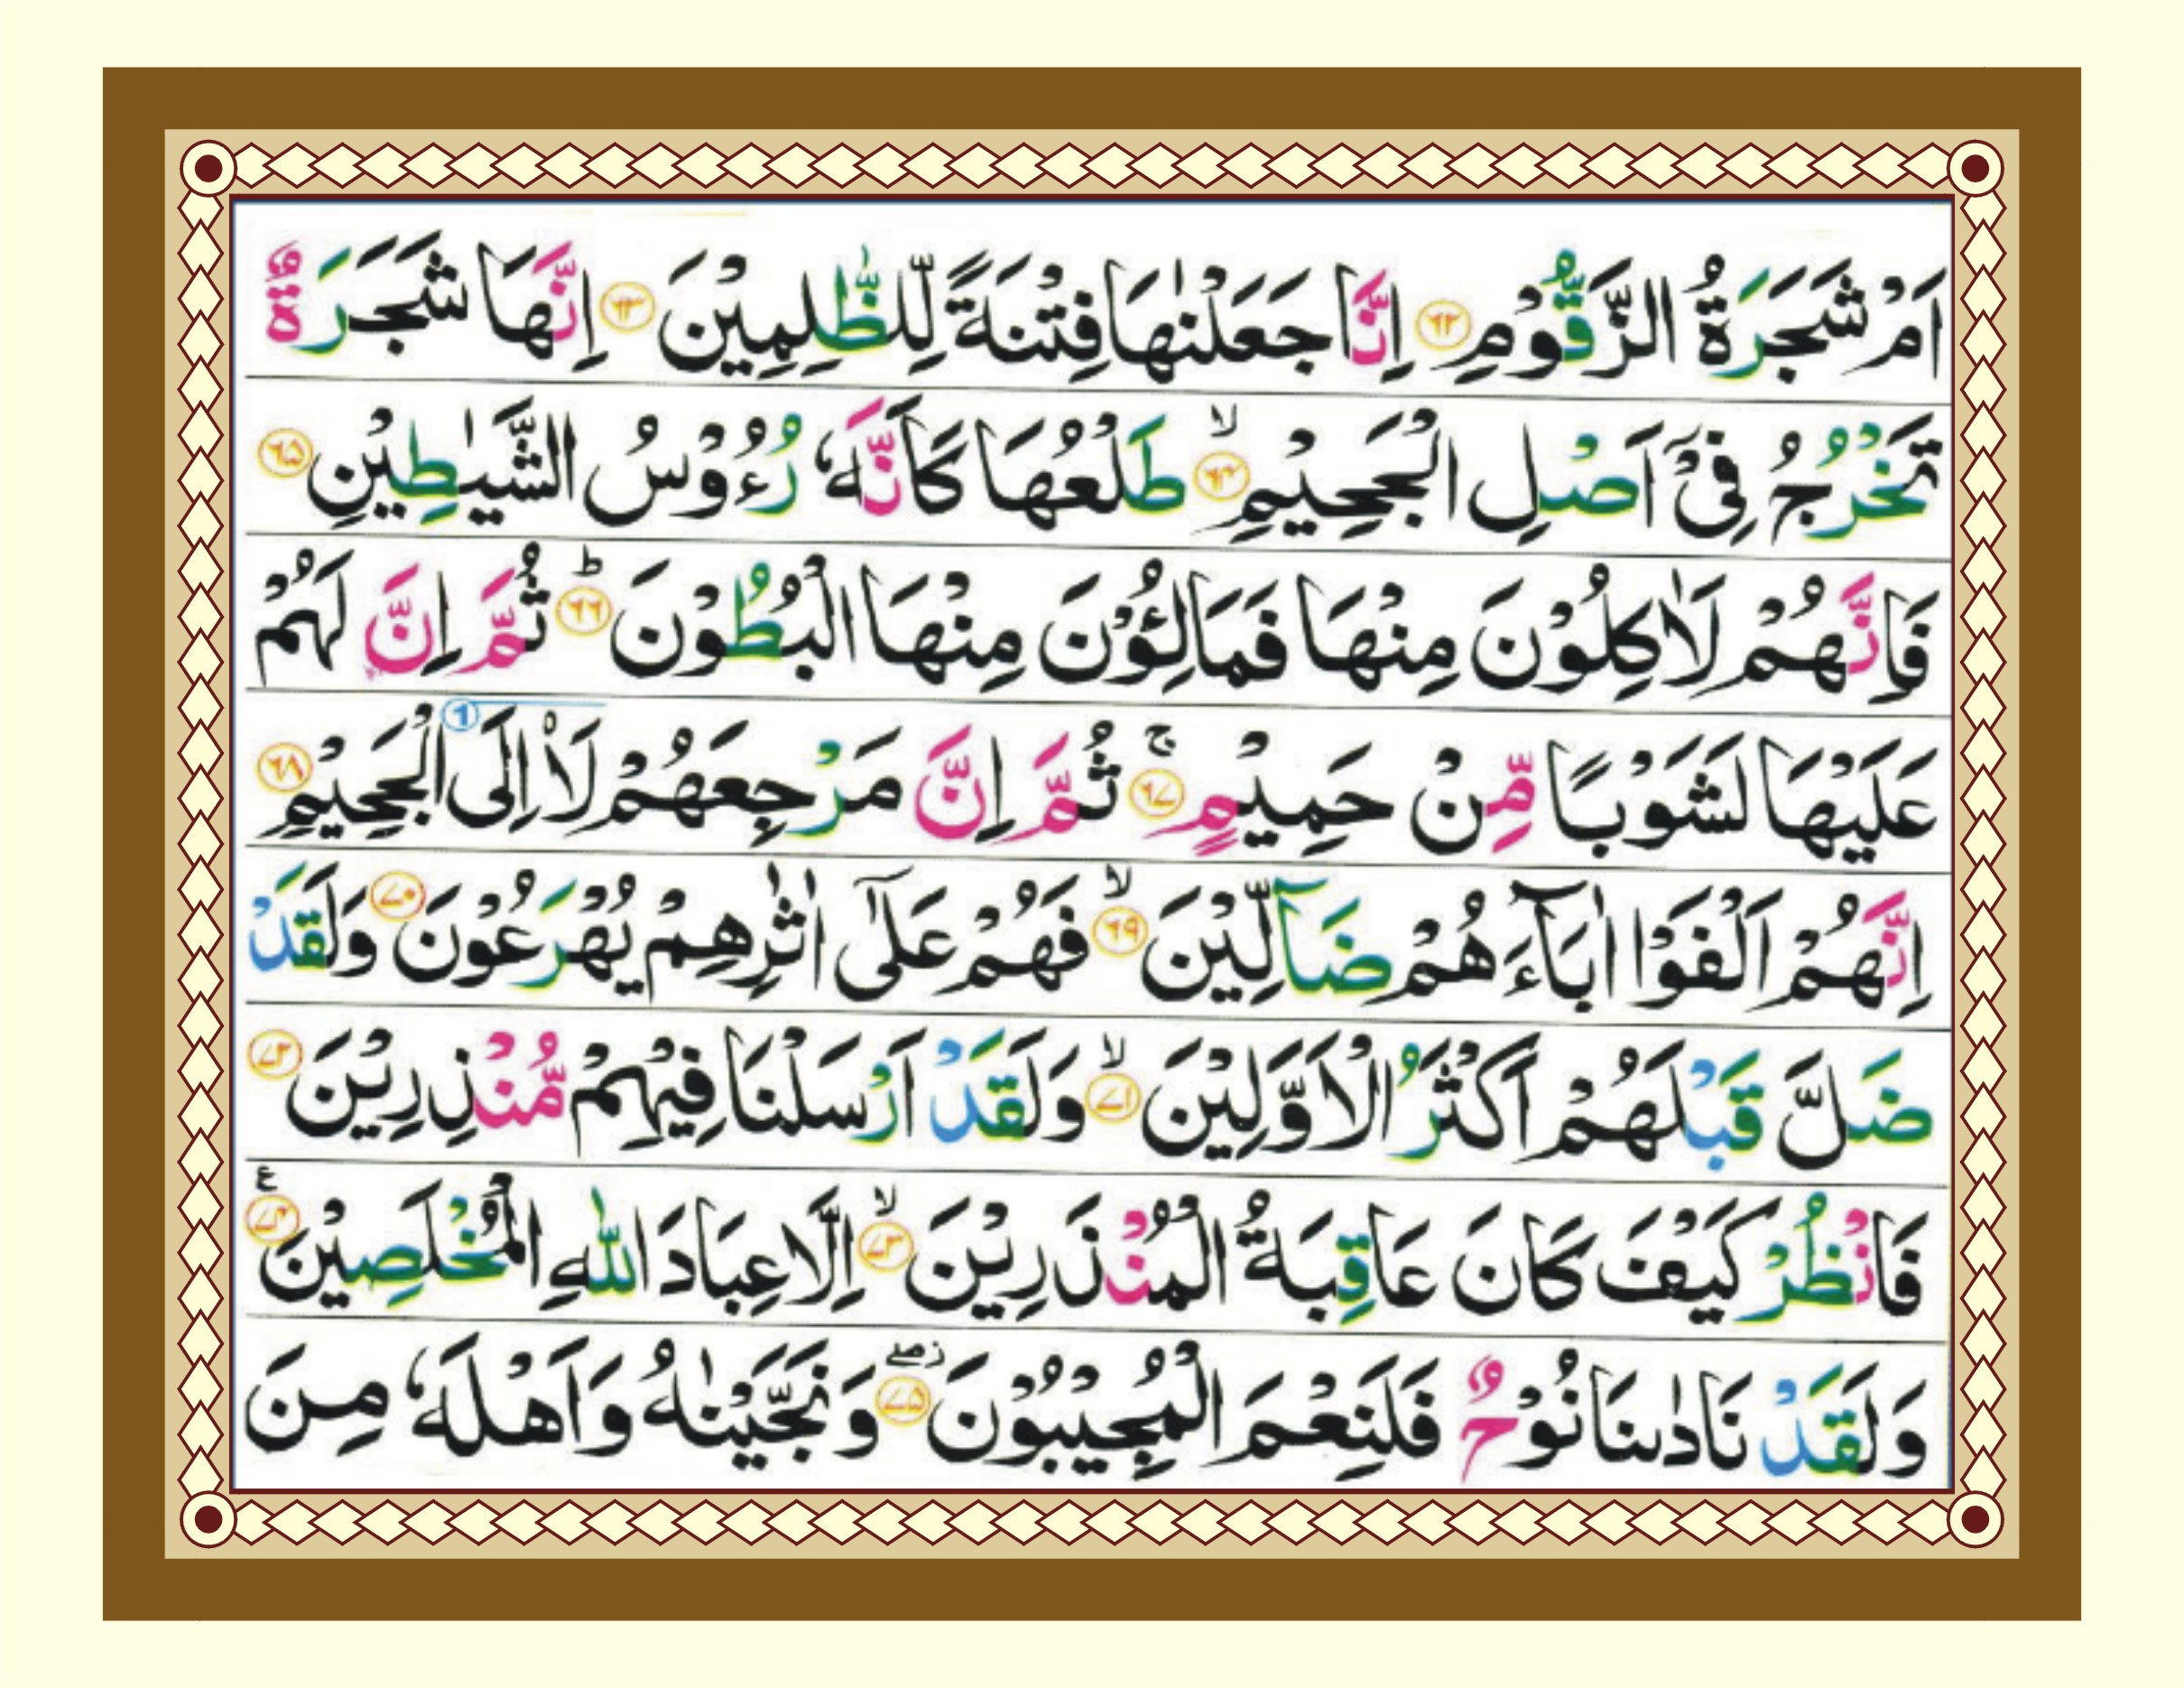 اَمْ شَجَرَةُ الزَّقُّوْمِ ﴿۶۲﴾ اِنَّا جَعَلْنٰهَا فِتْنَةً لِّلظّٰلِمِيْنَ ﴿۶۳﴾ اِنَّهَا شَجَرَةٌ
تَخْرُجُ فِىْۤ اَصْلِ الْجَحِيْمِ ۙ‏ ﴿۶۴﴾ طَلْعُهَا كَاَنَّهٗ رُءُوْسُ الشَّيٰطِيْنِ ﴿۶۵﴾
فَاِنَّهُمْ لَاٰكِلُوْنَ مِنْهَا فَمَالِئُوْنَ مِنْهَا الْبُطُوْنَ ؕ ﴿۶۶﴾ ثُمَّ اِنَّ لَهُمْ
عَلَيْهَا لَشَوْبًا مِّنْ حَمِيْمٍ ۚ ﴿۶۷﴾ ثُمَّ اِنَّ مَرْجِعَهُمْ لَا۟اِلَى الْجَحِيْمِ ﴿۶۸﴾
اِنَّهُمْ اَلْفَوْا اٰبَآءَهُمْ ضَآلِّيْنَ ۙ ﴿۶۹﴾ فَهُمْ عَلٰٓى اٰثٰرِهِمْ يُهْرَعُوْنَ ﴿۷۰﴾ وَلَقَدْ
ضَلَّ قَبْلَهُمْ اَكْثَرُ الْاَوَّلِيْنَ ۙ ﴿۷۱﴾ وَلَقَدْ اَرْسَلْنَا فِيْهِمْ مُّنْذِرِيْنَ ﴿۷۲﴾
فَانْظُرْ كَيْفَ كَانَ عَاقِبَةُ الْمُنْذَرِيْنَ ۙ ﴿۷۳﴾ اِلَّا عِبَادَ اللّٰهِ الْمُخْلَصِيْنَ ﴿۷۴﴾ ع
وَلَقَدْ نَادٰىنَا نُوْحٌ فَلَنِعْمَ الْمُجِيْبُوْنَ ۖ ﴿۷۵﴾ وَنَجَّيْنٰهُ وَاَهْلَهٗ مِنَ